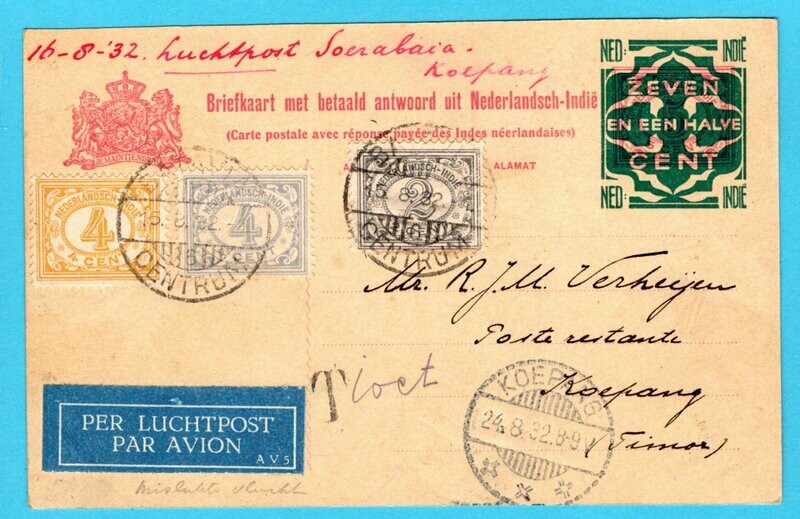 16-8-'32. Luchtpost Soerabaia -
Koepang
NED: INDIË
ZEVEN
EN EEN HALVE
CENT
NED: INDIË
Briefkaart met betaald antwoord uit Nederlandsch-Indië
(Carte postale avec réponse payée des Indes néerlandaises)
ALAMAT
JE MAINTIENDRAI
NEDERLANDSCH-INDIË
4
4 CENT
4
CENT
NEDERLANDSCH-INDIË
2
8.32
CENTRUM
CENTRUM
Mr. R.J.M. Verheijen
Poste restante
Koepang
(Timor)
T
KOEPANG
24.8.32.8-9
PER LUCHTPOST
PAR AVION
AV5
mislukte vlucht